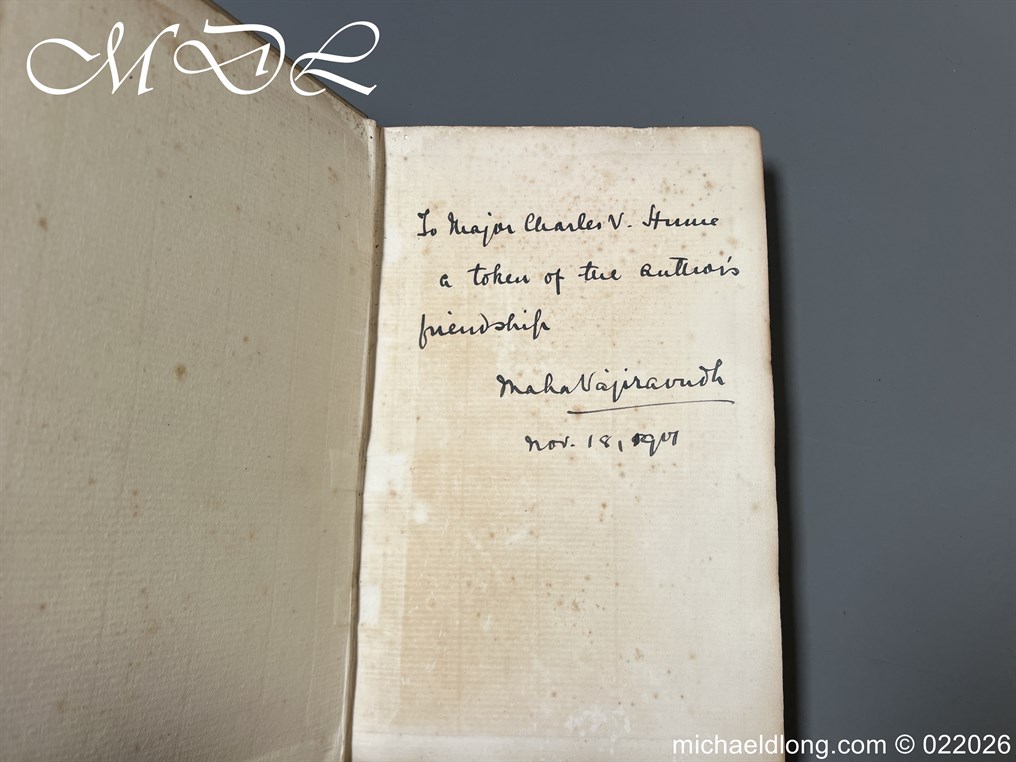 MDL
To Major Charles V. Hume
a token of the author's
friendship
Maha Vajiravudh
Nov. 18, 1901
michaeldlong.com © 022026